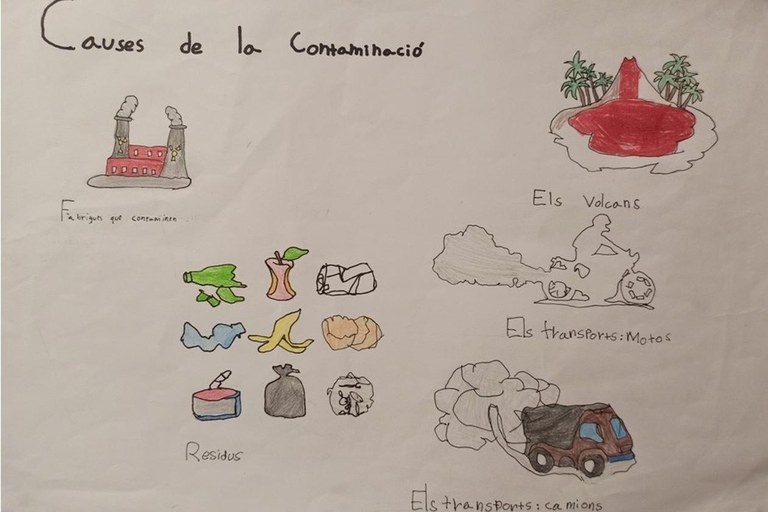 Causes de la Contaminació
Els Volcans
Fàbrigues que contaminen
Els transports: Motos
Residus
Els transports: camions